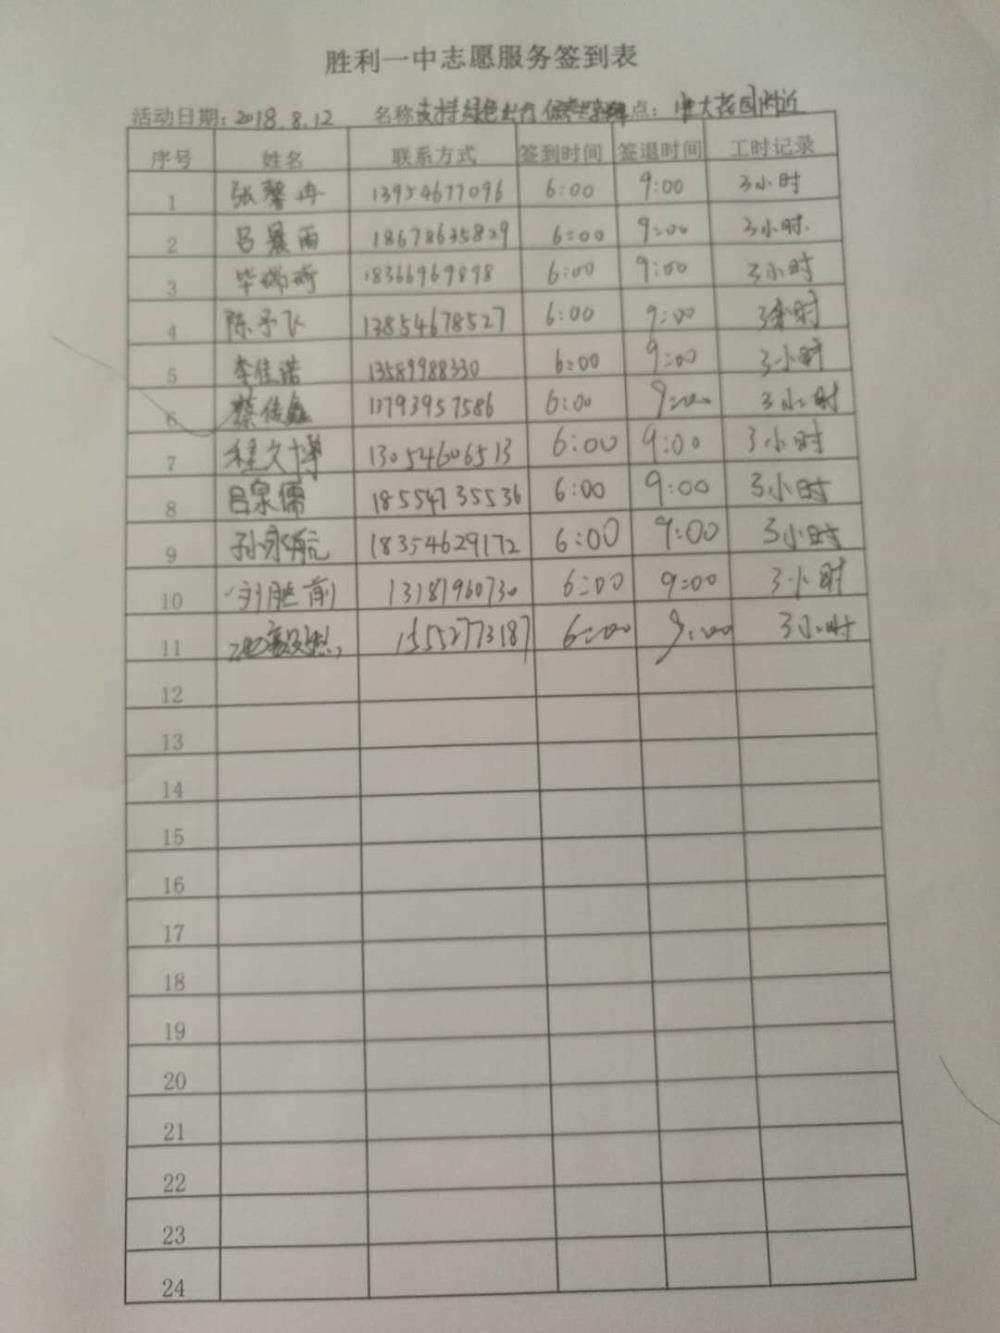 胜利一中志愿服务签到表
活动日期: 2018.8.12 名称支持绿色出行 点: 大花园附近
序号 姓名 联系方式 签到时间 签退时间 工时记录
1 张馨冉 13954677096 6:00 9:00 3小时
2 吕晨雨 18678635829 6:00 9:00 3小时.
3 毕瑞琦 18366969898 6:00 9:00 3小时
4 陈予飞 13854678527 6:00 9:00 3小时
5 李佳浩 13589988330 6:00 9:00 3小时
6 蔡传鑫 13793957586 6:00 9:00 3小时
7 程文博 13054606513 6:00 9:00 3小时
8 吕泉儒 18554735536 6:00 9:00 3小时
9 孙永航 18354629172 6:00 9:00 3小时
10 刘胜前 13187960730 6:00 9:00 3小时
11 15552773187 6:00 9:00 3小时
12
13
14
15
16
17
18
19
20
21
22
23
24